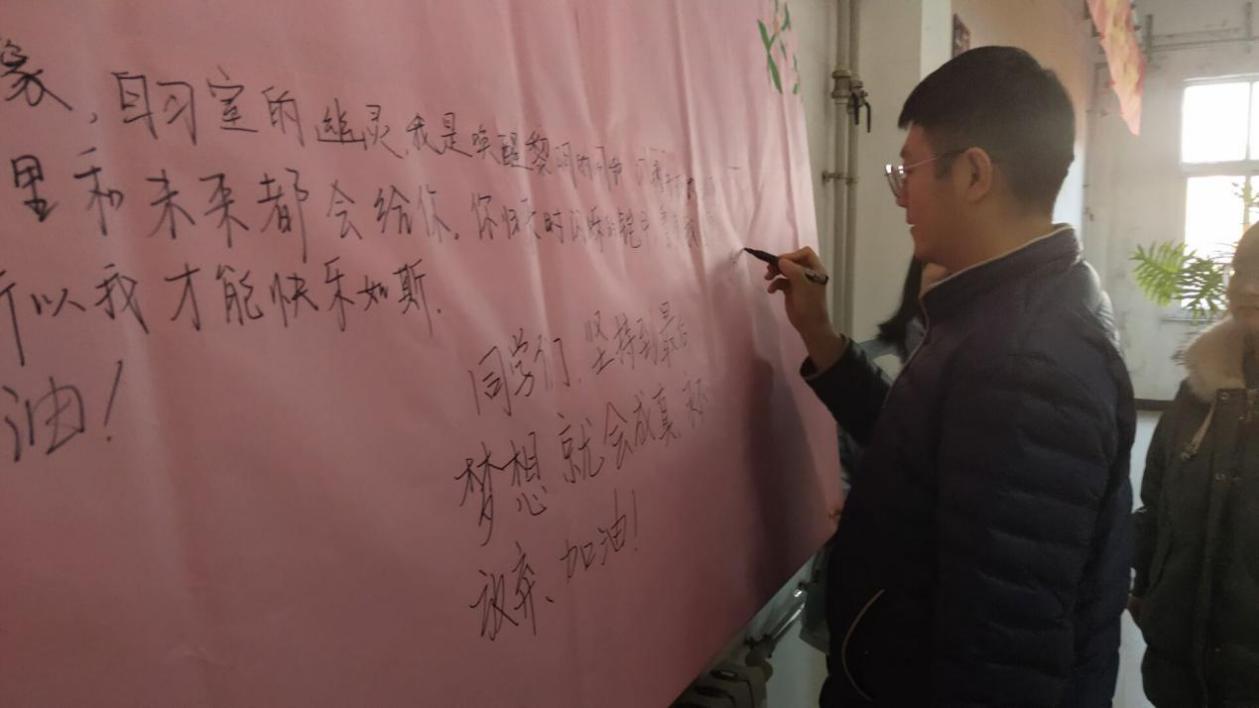 象，自习室的幽灵，我是唤醒黎明的
里和未来都会给你。你
所以我才能快乐如斯.
油！
同学们、坚持到最后
梦想就会成真，不
放弃、加油！